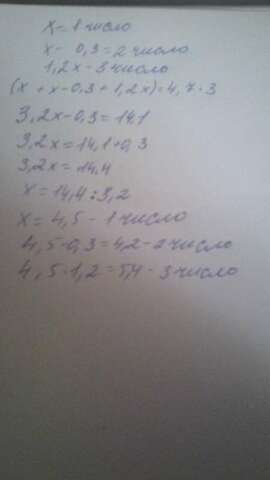 x - 1 число
x - 0,3 = 2 число
1,2x - 3 число
(x + x - 0,3 + 1,2x) = 4,7 · 3
3,2x - 0,3 = 14,1
3,2x = 14,1 + 0,3
3,2x = 14,4
x = 14,4 : 3,2
x = 4,5 - 1 число
4,5 - 0,3 = 4,2 - 2 число
4,5 · 1,2 = 5,4 - 3 число